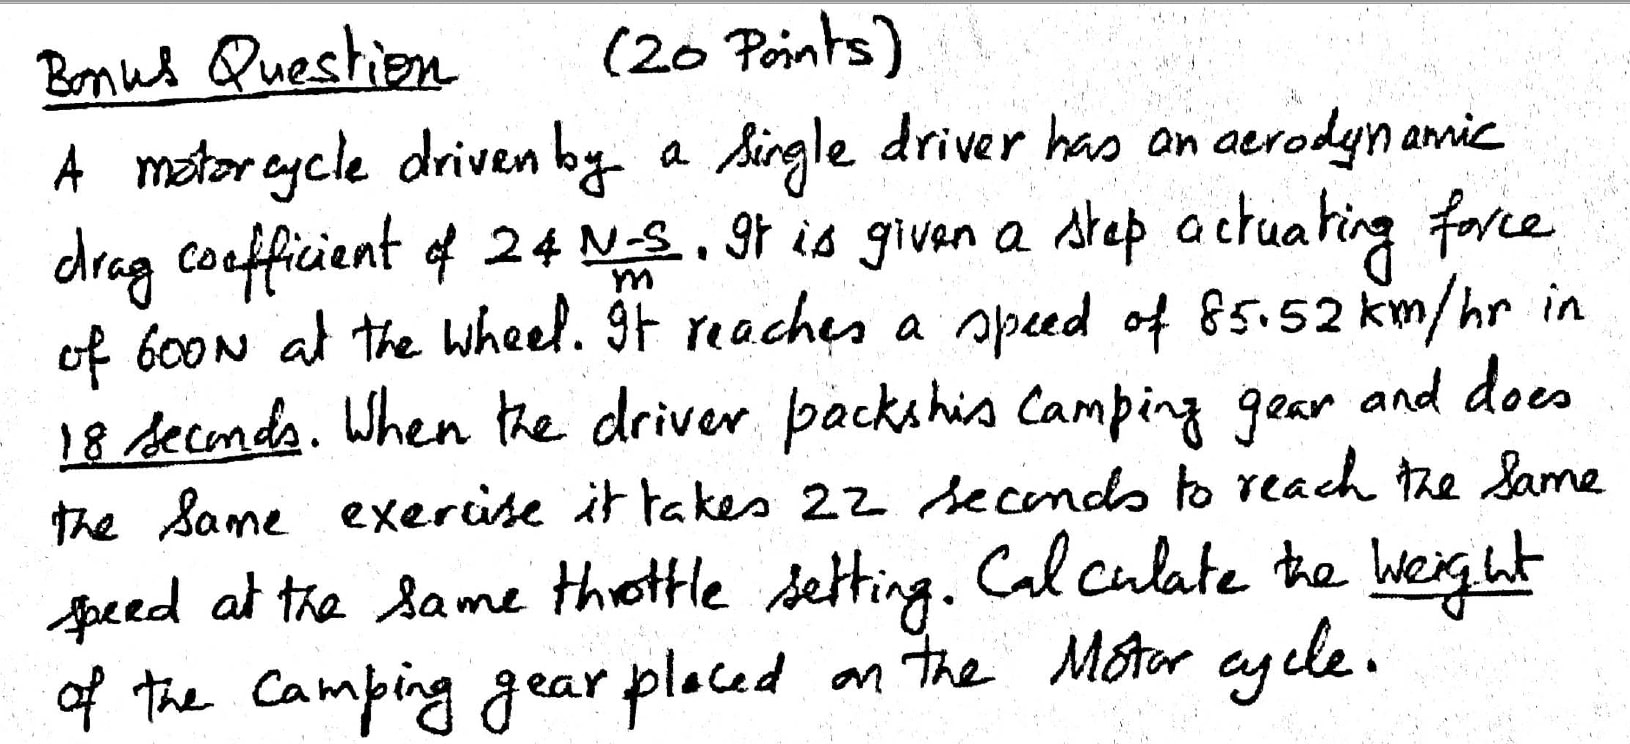 Bonus Question (20 Points)
A motorcycle driven by a single driver has an aerodynamic
drag coefficient of 24 N-S/m. It is given a step actuating force
of 600N at the wheel. It reaches a speed of 85.52 km/hr in
18 seconds. When the driver packs his camping gear and does
the same exercise it takes 22 seconds to reach the same
speed at the same throttle setting. Calculate the weight
of the camping gear placed on the Motor cycle.